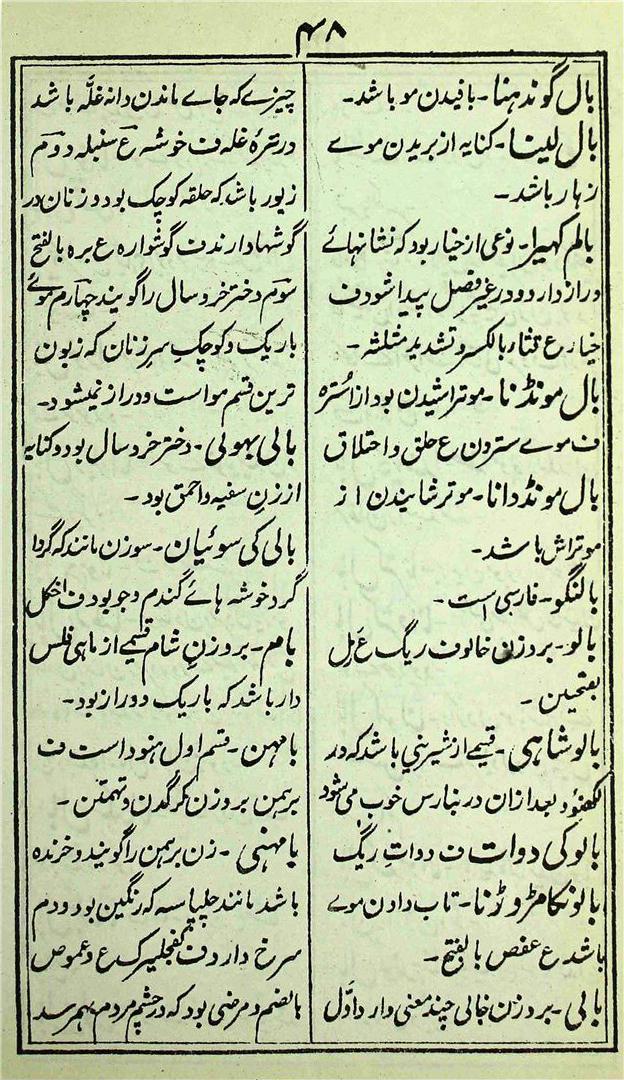 ۴۸
بال گوندهنا۔ بافیدن مو باشد۔
بال لینا۔ کنایه از بریدن موے
زهار باشد۔
بالم کهیرا۔ نوعی از خیار بود که نشانهائے
دراز دارد و در غیر فصل پیدا شود ف
خیار ع قثاء بالکسر و تشدید مثلثه۔
بال مونڈنا۔ موتراشیدن بود از اُستره
ف موے ستردن ع حلق و احتلاق
بال مونڈدانا۔ موترشایندن از
موتراش باشد۔
بالنگو۔ فارسی است۔
بالو۔ بروزن خالو ف ریگ ع رَمل
بفتحین۔
بالوشاهی۔ قسمے از شیرینی باشد که در
لکهنؤ و بعد ازان در بنارس خوب می شود
بالو کی دوات ف دواتِ ریگ
بالونکا مڑوڑنا۔ تاب دادن موے
باشد ع عفص بالفتح۔
بالی۔ بروزن خالی چند معنی دارد اوّل
چیزے که جاے ماندن دانه غلّه باشد
در ترهٔ غله ف خوشه ع سنبله دوم
زیور باشد که حلقه کوچک بود و زنان در
گوشها دارند ف گوشواره ع بره بالفتح
سوم دختر خرد سال را گویند چهارم موئے
باریک و کوچک سر زنان که زبون
ترین قسم مو است و دراز نمیشود۔
بالی بهولی۔ دختر خرد سال بود و کنایه
از زن سفیه و احمق بود۔
بالی کی سوئیان۔ سوزن مانند که گردا
گرد خوشه هائے گندم و جو بود ف اخکل
بام۔ بروزن شام قسمے از ماهی فلس
دار باشد که باریک و دراز بود۔
بامهن۔ قسم اول هنود است ف
برهمن بروزن کرگدن و تهمتن۔
بامهنی۔ زن برهمن را گویند و خزنده
باشد مانند چلپاسه که رنگین بود و دم
سرخ دارد ف ع دعموص
بالضم و مرضی بود که در چشم مردم بهم رسد